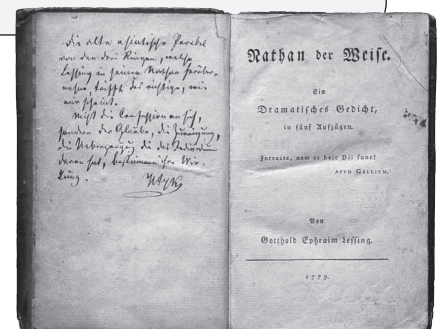 Die alte asiatische Parabel
von den drei Ringen, welche
Lessing in seinem Nathan
das richtige, wie
mir scheint.
Nicht die Confession an sich,
sondern der Glaube, die Zuneigung,
die Ueberzeugung die das Individuum
daran hat, bestimmen ihre Wir-
kung.
Nathan der Weise.
Ein
Dramatisches Gedicht,
in fünf Aufzügen.
Introite, nam et heic Dii sunt!
APVD GELLIVM.
Von
Gotthold Ephraim Lessing.
1779.